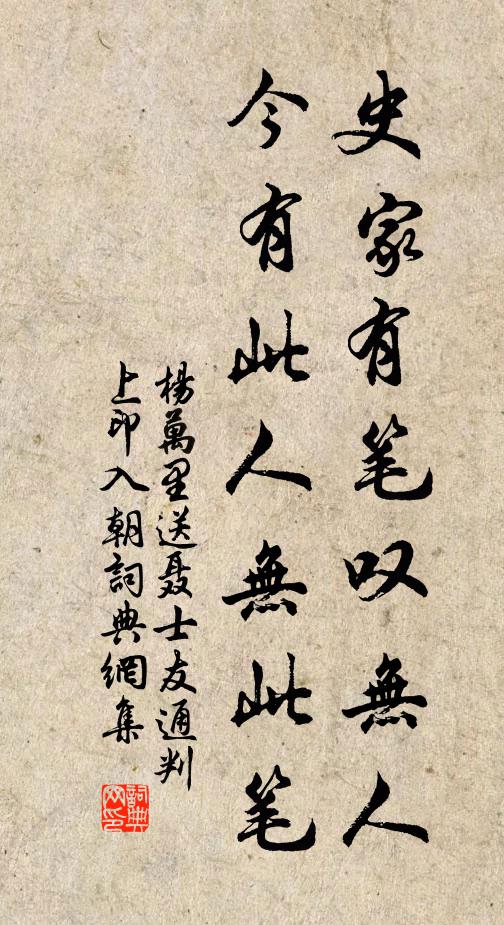 史家有笔叹無人
今有此人無此笔
楊萬里送聂士友通判
上印入朝詞典網集
詞典
网印